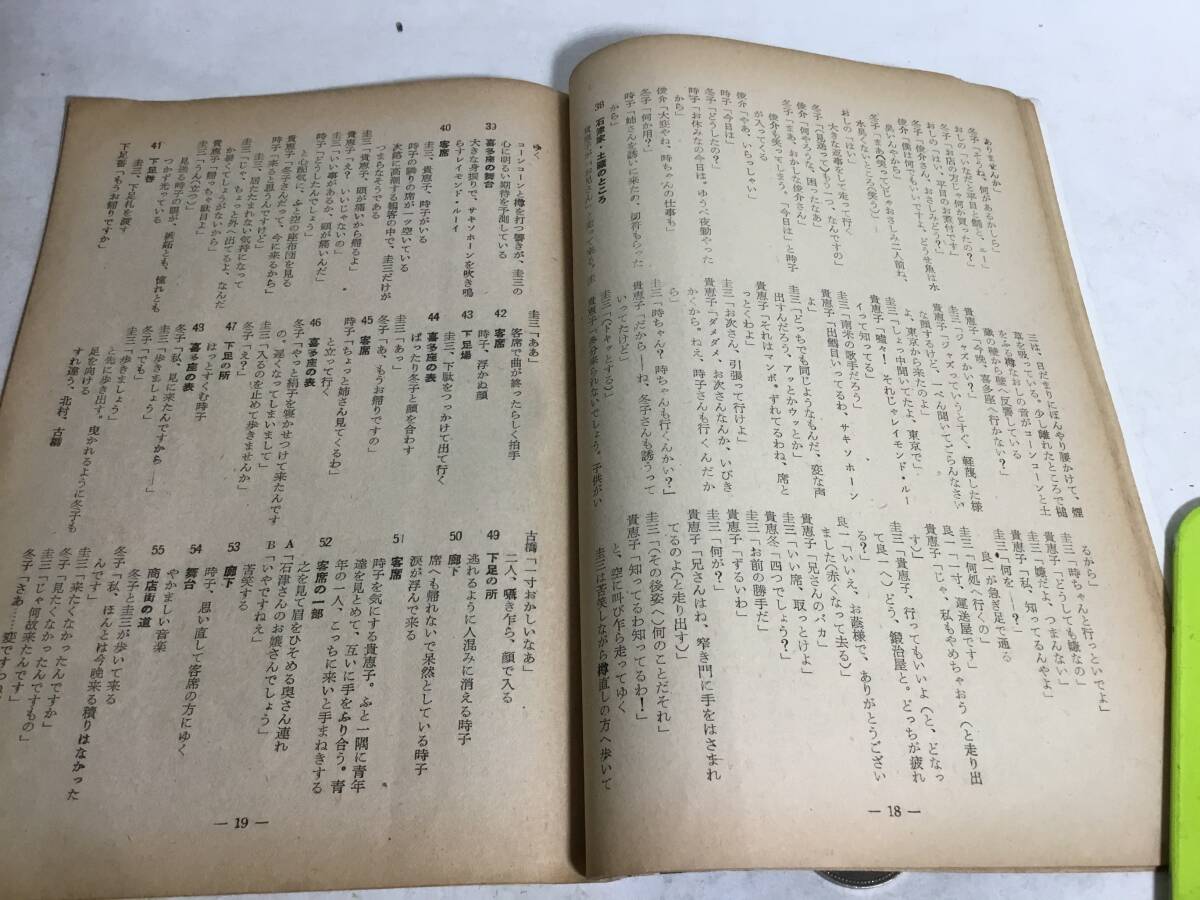 ありませんか」
冬子「そうね、何があるかしら」
おしの「ひらめだと平目と鯛と、ニー」
冬子「お店の方じゃ、何か買ったの?」
おしの「はい、平目のお煮付です」
冬子「俊介さん、おさしみどう?」
俊介「僕は何でもいいですよ、どうせ魚は水
臭いんやから」
冬子「まあ(笑って)じゃおさしみ二人前ね、
水臭くないところ(笑う)」
おしの「はい」
大きな返事をして走って行く
冬子「(見送って)もう一つ、なんですの」
俊介「何やろうな、困ったなあ」
冬子「まあ、おかしな俊介さん」
俊介も笑ってしまう。「今日は」と時子
が入ってくる
俊介「やあ、いらっしゃい」
時子「今日は」
冬子「どうしたの?」
時子「お休みなの今日は。ゆうべ夜勤やった
から」
俊介「大変やね、時ちゃんの仕事も」
冬子「何か用?」
時子「姉さんを誘いに来たの、切符もらった
から」
38 石津家・土蔵のところ
三は、日だまりにぼんやり腰かけて、煙
草を吸っている。少し離れたところで槌
をふる樽なおしの音がコーンコーンと土
蔵の壁から壁へ反響している
貴恵子「今晩、喜多座へ行かない?」
圭三「ジャズかい?」
貴恵子「ジャズっていうとすぐ、軽蔑した様
な顔するけど、一ぺん聞いてごらんなさい
よ、東京から来たのよ」
圭三「しょっ中聞いてたよ、東京で」
貴恵子「嘘々! それじゃレイモンド・ルー
イって知ってる」
圭三「南米の歌手だろう」
貴恵子「出鱈目いってるわ、サキソホーン
よ」
圭三「どっちでも同じようなもんだ、変な声
出すんだろう、アッとかウッとか」
貴恵子「それはマンボ。ずれてるわね、席と
っとくわよ」
圭三「お次さん、引張って行けよ」
貴恵子「ダメダメ、お次さんなんか、いびき
かくから。ねえ、時子さんも行くんだか
ら」
圭三「時ちゃん?時ちゃんも行くんかい?」
貴恵子「だから――ね、冬子さんも誘うって
いってたけど」
圭三「(ドキッとする)」
貴恵子「半分乗られないでしょう。子供がい
るから」
圭三「時ちゃんと行っといでよ」
貴恵子「どうしても嫌なの」
圭三「嫌だよ、つまんない」
貴恵子「私、知ってるんやよ」
圭三「何を――?」
良一が急ぎ足で通る
圭三「何処へ行くの」
良一「一寸、運送屋です」
貴恵子「じゃ、私もやめちゃおう(と走り出
す)」
圭三「貴恵子、行ってもいいよ(と、どなっ
て良一へ)どう、鍛治屋と。どっちが疲れ
る?」
良一「いいえ、お蔭様で、ありがとうござい
ました(赤くなって去る)」
貴恵子「兄さんのバカ」
圭三「いい席、取っとけよ」
貴恵子「四つでしょう?」
圭三「お前の勝手だ」
貴恵子「ずるいわ」
圭三「何が?」
貴恵子「兄さんはね、窄き門に手をはさまれ
てるのよ(と走り出す)」
圭三「(その後姿へ)何のことだそれ」
貴恵子「知ってるわ知ってるわ!」
と、空に叫び乍ら走ってゆく
圭三は苦笑しながら樽直しの方へ歩いて
― 18 ―
ゆく
コーンコーンと樽を打つ響きが、圭三の
心に明るい期待を予測している
39 喜多座の舞台
大きな身振りで、サキソホーンを吹き鳴
らすレイモンド・ルーイ
40 客席
圭三、貴恵子、時子がいる
時子の隣りの席が一つ空いている
次第に高潮する観客の中で、圭三だけが
つまらなそうである
圭三「貴恵子、頭が痛いから帰るよ」
貴恵子「え? いいじゃないの」
圭三「いい事があるか、頭が痛いんだ」
時子「どうしたんでしょう」
と心配気に、ふと空の座布団を見る
貴恵子「冬子さんだって、今に来るから」
時子「来ると思うんですけど」
圭三、居たたまれない気持になって
圭三「じゃ、ちょっと外へ出てるよ、なんだ
か暑くてしょうがないから」
貴恵子「帰っちゃ駄目よ」
圭三「うん(立つ)」
見送る時子の眼が、嫉妬とも、憧れとも
つかず光っている
41 下足番
圭三、下足札を渡す
下足番「もうお帰りですか」
圭三「ああ」
42 客席
客席で曲が終ったらしく拍手
時子、浮かぬ顔
43 下足場
圭三、下駄をつっかけて出て行く
44 喜多座の表
ばったり冬子と顔を合わす
圭三「あっ」
冬子「あ、もうお帰りですの」
45 客席
時子「ちょっと姉さん見てくるわ」
と立って行く
46 喜多座の表
冬子「やっと絹子を寝かせつけて来たんです
の、遅くなってしまいまして」
圭三「入るのを止めて歩きませんか」
冬子「え?」
47 下足の所
はっとすくむ時子
48 喜多座の表
冬子「私、見に来たんですから――」
圭三「歩きましょう」
冬子「でも」
圭三「歩きましょう」
と先に歩き出す。曳かれるように冬子も
足を向ける
すれ違う、北村、古橋
古橋「一寸おかしいなあ」
二人、囁き乍ら、顔で入る
49 下足の所
逃れるように人混みに消える時子
50 廊下
席へも帰れないで呆然としている時子
涙が浮んで来る
51 客席
時子を気にする貴恵子。ふと一隅に青年
達を見とめて、互いに手をふり合う。青
年の一人、こっちに来いと手まねきする
52 客席の一部
之を見て眉をひそめる奥さん連れ
A「石津さんのお嬢さんでしょう」
B「いやですねえ」
苦笑する
53 廊下
時子、思い直して客席の方にゆく
54 舞台
やかましい音楽
55 商店街の道
冬子と圭三が歩いて来る
冬子「私、ほんとは今晩来る積りはなかった
んです」
圭三「来たくなかったんですか」
冬子「見たくなかったんですもの」
圭三「じゃ何故来たんです」
冬子「さあ……変ですわね
― 19 ―